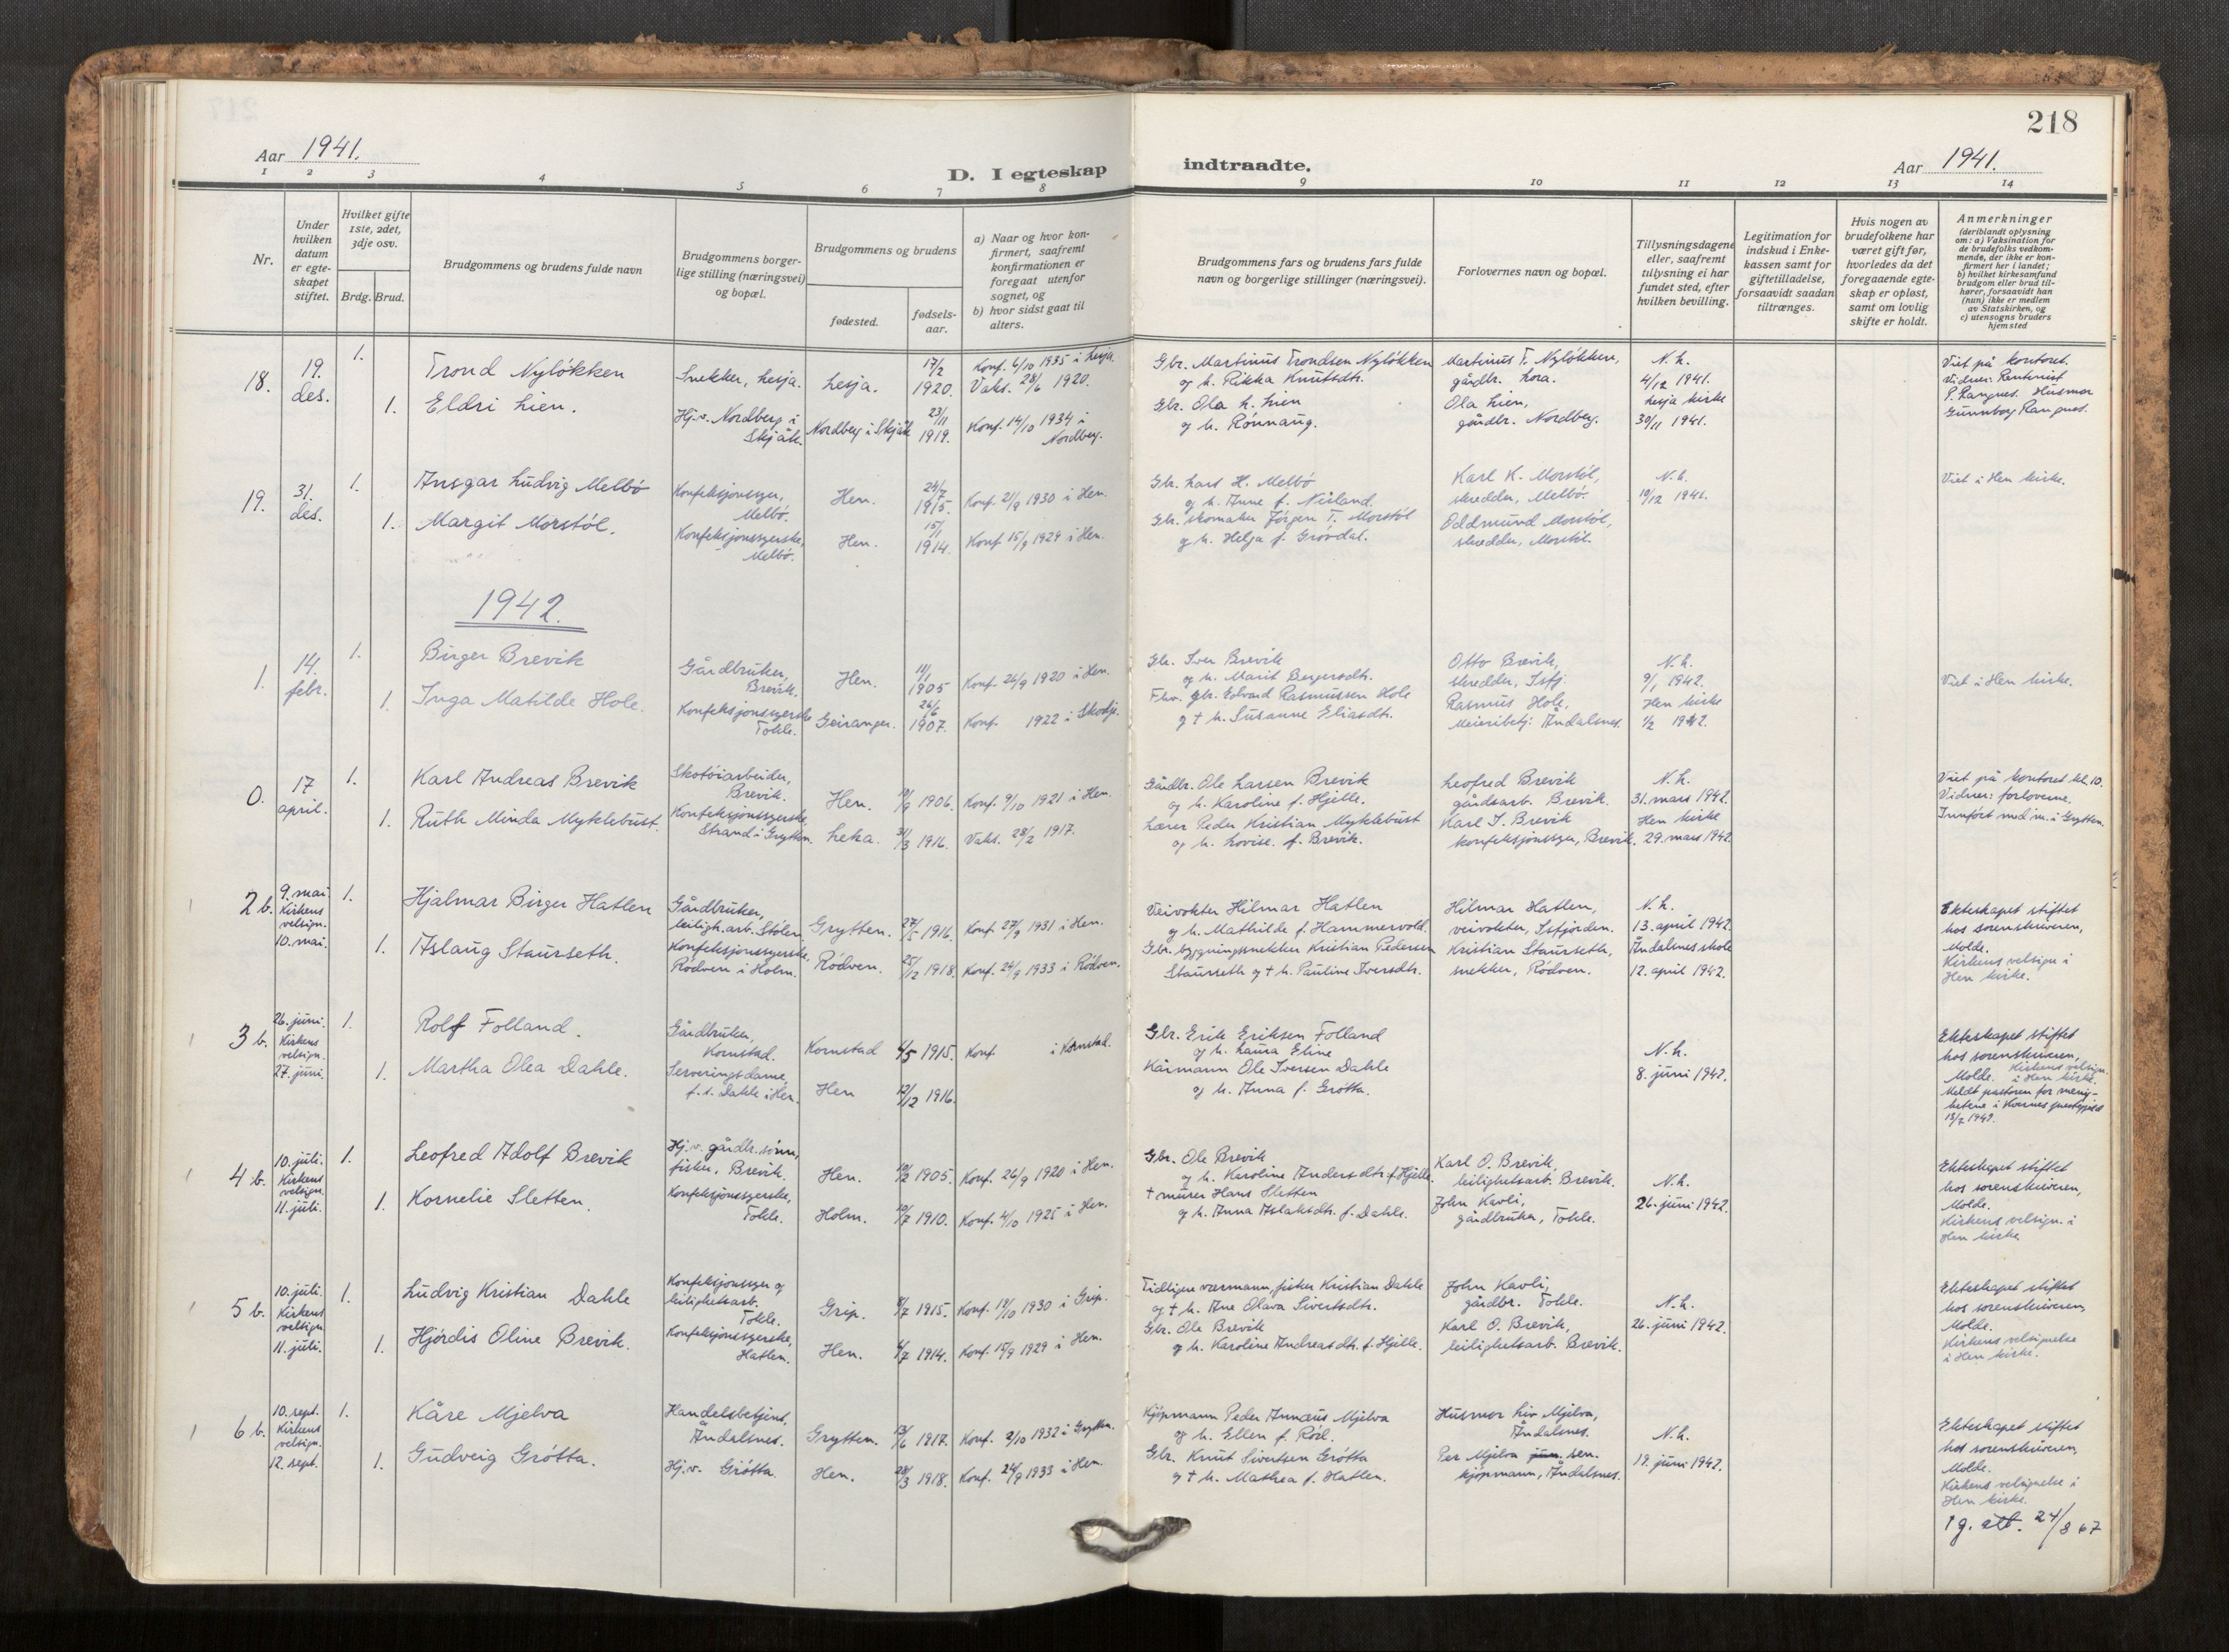 218
Aar 1941.
D. I egteskap indtraadte.
Aar 1941.
1 2 3 4 5 6 7 8 9 10 11 12 13 14
Nr.
Under
hvilken
datum
er egte-
skapet
stiftet.
Hvilket gifte
1ste, 2det,
3dje osv.
Brdg. Brud.
Brudgommens og brudens fulde navn
Brudgommens borger-
lige stilling (næringsvei)
og bopæl.
Brudgommens og brudens
fødested.
fødsels-
aar.
a) Naar og hvor kon-
firmert, saafremt
konfirmationen er
foregaat utenfor
sognet, og
b) hvor sidst gaat til
alters.
Brudgommens fars og brudens fars fulde
navn og borgerlige stillinger (næringsvei).
Forlovernes navn og bopæl.
Tillysningsdagene
eller, saafremt
tillysning ei har
fundet sted, efter
hvilken bevilling.
Legitimation for
indskud i Enke-
kassen samt for
giftetilladelse,
forsaavidt saadan
tiltrænges.
Hvis nogen av
brudefolkene har
været gift før,
hvorledes da det
foregaaende egte-
skap er opløst,
samt om lovlig
skifte er holdt.
Anmerkninger
(deriblandt oplysning
om: a) Vaksination for
de brudefolks vedkom-
mende, der ikke er kon-
firmert her i landet;
b) hvilket kirkesamfund
brudgom eller brud til-
hører, forsaavidt han
(hun) ikke er medlem
av Statskirken, og
c) utensogns bruders
hjemsted
18.
19.
des.
1.
Trond Nyløkken
Snekker, Lesja.
Lesja.
17/2
1920.
Konf. 6/10 1935 i Lesja.
Vaks. 28/6 1920.
Gbr. Martinus Trondsen Nyløkken
og h. Rikka Knutsdtr.
Martinus T. Nyløkken,
gårdbr. Lora.
N.h.
4/12 1941.
1.
Eldri Lien.
Hj.v. Nordberg i
Skjåk.
Nordberg i Skjåk
23/11
1919.
Konf. 14/10 1934 i
Nordberg.
Gbr. Ola h. Lien
og h. Rønnaug.
Ola Lien,
gårdbr. Nordberg.
Lesja kirke
30/11 1941.
Viet på kontoret.
Vidner: Rentenist
P. Rangnes. Husmor
Gunnborg Rangnes.
19.
31.
des.
1.
Ansgar Ludvig Melbö
Konfeksjonssyer,
Melbö.
Hen.
24/7
1915.
Konf. 21/9 1930 i Hen.
Gbr. Lars H. Melbö
og h. Anne f. Nieland.
Karl K. Morstöl,
skredder, Melbö.
N.h.
10/12 1941.
1.
Margit Morstöl.
Konfeksjonssyerske,
Melbö.
Hen.
15/1
1914.
Konf. 15/9 1929 i Hen.
Gbr. skomaker Jørgen T. Morstöl
og h. Helga f. Grøvdal.
Oddmund Morstöl,
skredder, Morstöl.
Viet i Hen kirke.
1942.
1.
14.
febr.
1.
Birger Brevik
Gårdbruker,
Brevik.
Hen.
11/1
1905
Konf. 26/9 1920 i Hen.
Gbr. Iver Brevik
og h. Marit Bergersdtr.
Otto Brevik,
skredder, Isfj.
N.h.
9/1 1942.
1.
Inga Matilde Hole.
Konfeksjonssyerske
Tokle.
Geiranger.
26/6
1907.
Konf. 1922 i Skodje.
Fhv. gbr. Edvard Rasmussen Hole
og † h. Susanne Eliasdtr.
Rasmus Hole,
Meieribetj. Åndalsnes.
Hen kirke
1/2 1942.
Viet i Hen kirke.
0.
17
april.
1.
Karl Andreas Brevik
Skotöiarbeider,
Brevik.
Hen.
10/9 1906.
Konf. 9/10 1921 i Hen.
Gårdbr. Ole Larsen Brevik
og h. Karoline f. Hjelle.
Leofred Brevik
gårdsarb. Brevik.
N.h.
31. mars 1942.
1.
Ruth Minda Myklebust.
Konfeksjonssyerske,
Strand i Grytten.
Leka.
31/3 1916.
Vaks. 28/2 1917.
Lærer Peder Kristian Myklebust
og h. Lovise. f. Brevik.
Karl I. Brevik
konfeksjonssyer, Brevik.
Hen kirke
29. mars 1942.
Viet på kontoret kl. 10.
Vidner: forloverne.
Innført med nr. i Grytten.
2 b.
9. mai.
Kirkens
velsign.
10. mai.
1.
Hjalmar Birger Hatlen
Gårdbruker,
leiligh.arb. Stölen
Grytten.
27/5 1916.
Konf. 27/9 1931 i Hen.
Veivokter Hilmar Hatlen
og h. Mathilde f. Hammervold.
Hilmar Hatlen,
veivokter, Isfjorden.
N.h.
13. april 1942.
1.
Aslaug Staurseth.
Konfeksjonssyerske,
Rödven i Holm.
Rödven.
25/12 1918.
Konf. 24/9 1933 i Rödven.
Gbr. bygningssnekker Kristian Pedersen
Staurseth og † h. Pauline Iversdtr.
Kristian Staurseth,
snekker, Rödven.
Åndalsnes skole
12. april 1942.
Ekteskapet stiftet
hos sorenskriveren,
Molde.
Kirkens velsign. i
Hen kirke.
3 b.
26. juni.
Kirkens
velsign.
27. juni.
1.
Rolf Folland.
Gårdbruker,
Kornstad.
Kornstad
4/5 1915.
Konf. i Kornstad.
Gbr. Erik Eriksen Folland
og h. Laura Eline
N.h.
8. juni 1942.
1.
Martha Olea Dahle.
Serveringsdame,
f.t. Dahle i Hen.
Hen
12/12 1916.
Kårmann Ole Iversen Dahle
og h. Anna f. Grötta.
Ekteskapet stiftet
hos sorenskriveren,
Molde. Kirkens velsign.
i Hen kirke.
Meldt pastoren for menig-
hetene i Kvernes prestegjeld
13/7 1942.
4 b.
10. juli.
Kirkens
velsign.
11. juli.
1.
Leofred Adolf Brevik
Hj.v. gårdbr.sönn,
fisker, Brevik.
Hen.
10/2 1905.
Konf. 26/9 1920 i Hen.
Gbr. Ole Brevik
og h. Karoline Andersdtr. f. Hjelle.
Karl O. Brevik,
leilighetsarb. Brevik.
N.h.
26. juni 1942.
1.
Kornelie Sletten.
Konfeksjonssyerske,
Tokle.
Holm.
10/7 1910.
Konf. 4/10 1925 i Hen.
† murer Hans Sletten
og h. Anna Aslaksdtr. f. Dahle.
John Kavli,
gårdbruker, Tokle.
Ekteskapet stiftet
hos sorenskriveren,
Molde.
Kirkens velsign. i
Hen kirke
5 b.
10. juli.
Kirkens
velsign
11. juli.
1.
Ludvig Kristian Dahle
Konfeksjonssyer og
leilighetsarb.
Tokle.
Grip.
8/7 1915.
Konf. 19/10 1930 i Grip.
Tidligere værmann, fisker Kristian Dahle
og † h. Ane Olava Sivertsdtr.
John Kavli,
gårdbr. Tokle.
N.h.
26. juni 1942.
1.
Hjördis Oline Brevik.
Konfeksjonssyerske,
Hatlen.
Hen.
4/7 1914.
Konf. 15/9 1929 i Hen.
Gbr. Ole Brevik
og h. Karoline Andreasdtr. f. Hjelle.
Karl O. Brevik,
leilighetsarb. Brevik.
Ekteskapet stiftet
hos sorenskriveren,
Molde.
Kirkens velsignelse
i Hen kirke.
6 b.
10. sept.
Kirkens
velsign.
12. sept.
1.
Kåre Mjelva
Handelsbetjent,
Åndalsnes.
Grytten.
13/6 1917.
Konf. 2/10 1932 i Grytten.
Kjöpmann Peder Annæus Mjelva
og h. Ellen f. Röd.
Husmor Liv Mjelva,
Åndalsnes.
N.h.
19. juni 1942.
1.
Gudveig Grötta.
Hj.v. Grötta
Hen.
28/3 1918.
Konf. 24/9 1933 i Hen.
Gbr. Knut Sivertsen Grötta
og † h. Mathea f. Hatlen.
Per Mjelva jun. sen.
kjöpmann, Åndalsnes.
Ekteskapet stiftet
hos sorenskriveren,
Molde.
Kirkens velsignelse i
Hen kirke.
1 g. att. 24/8 67